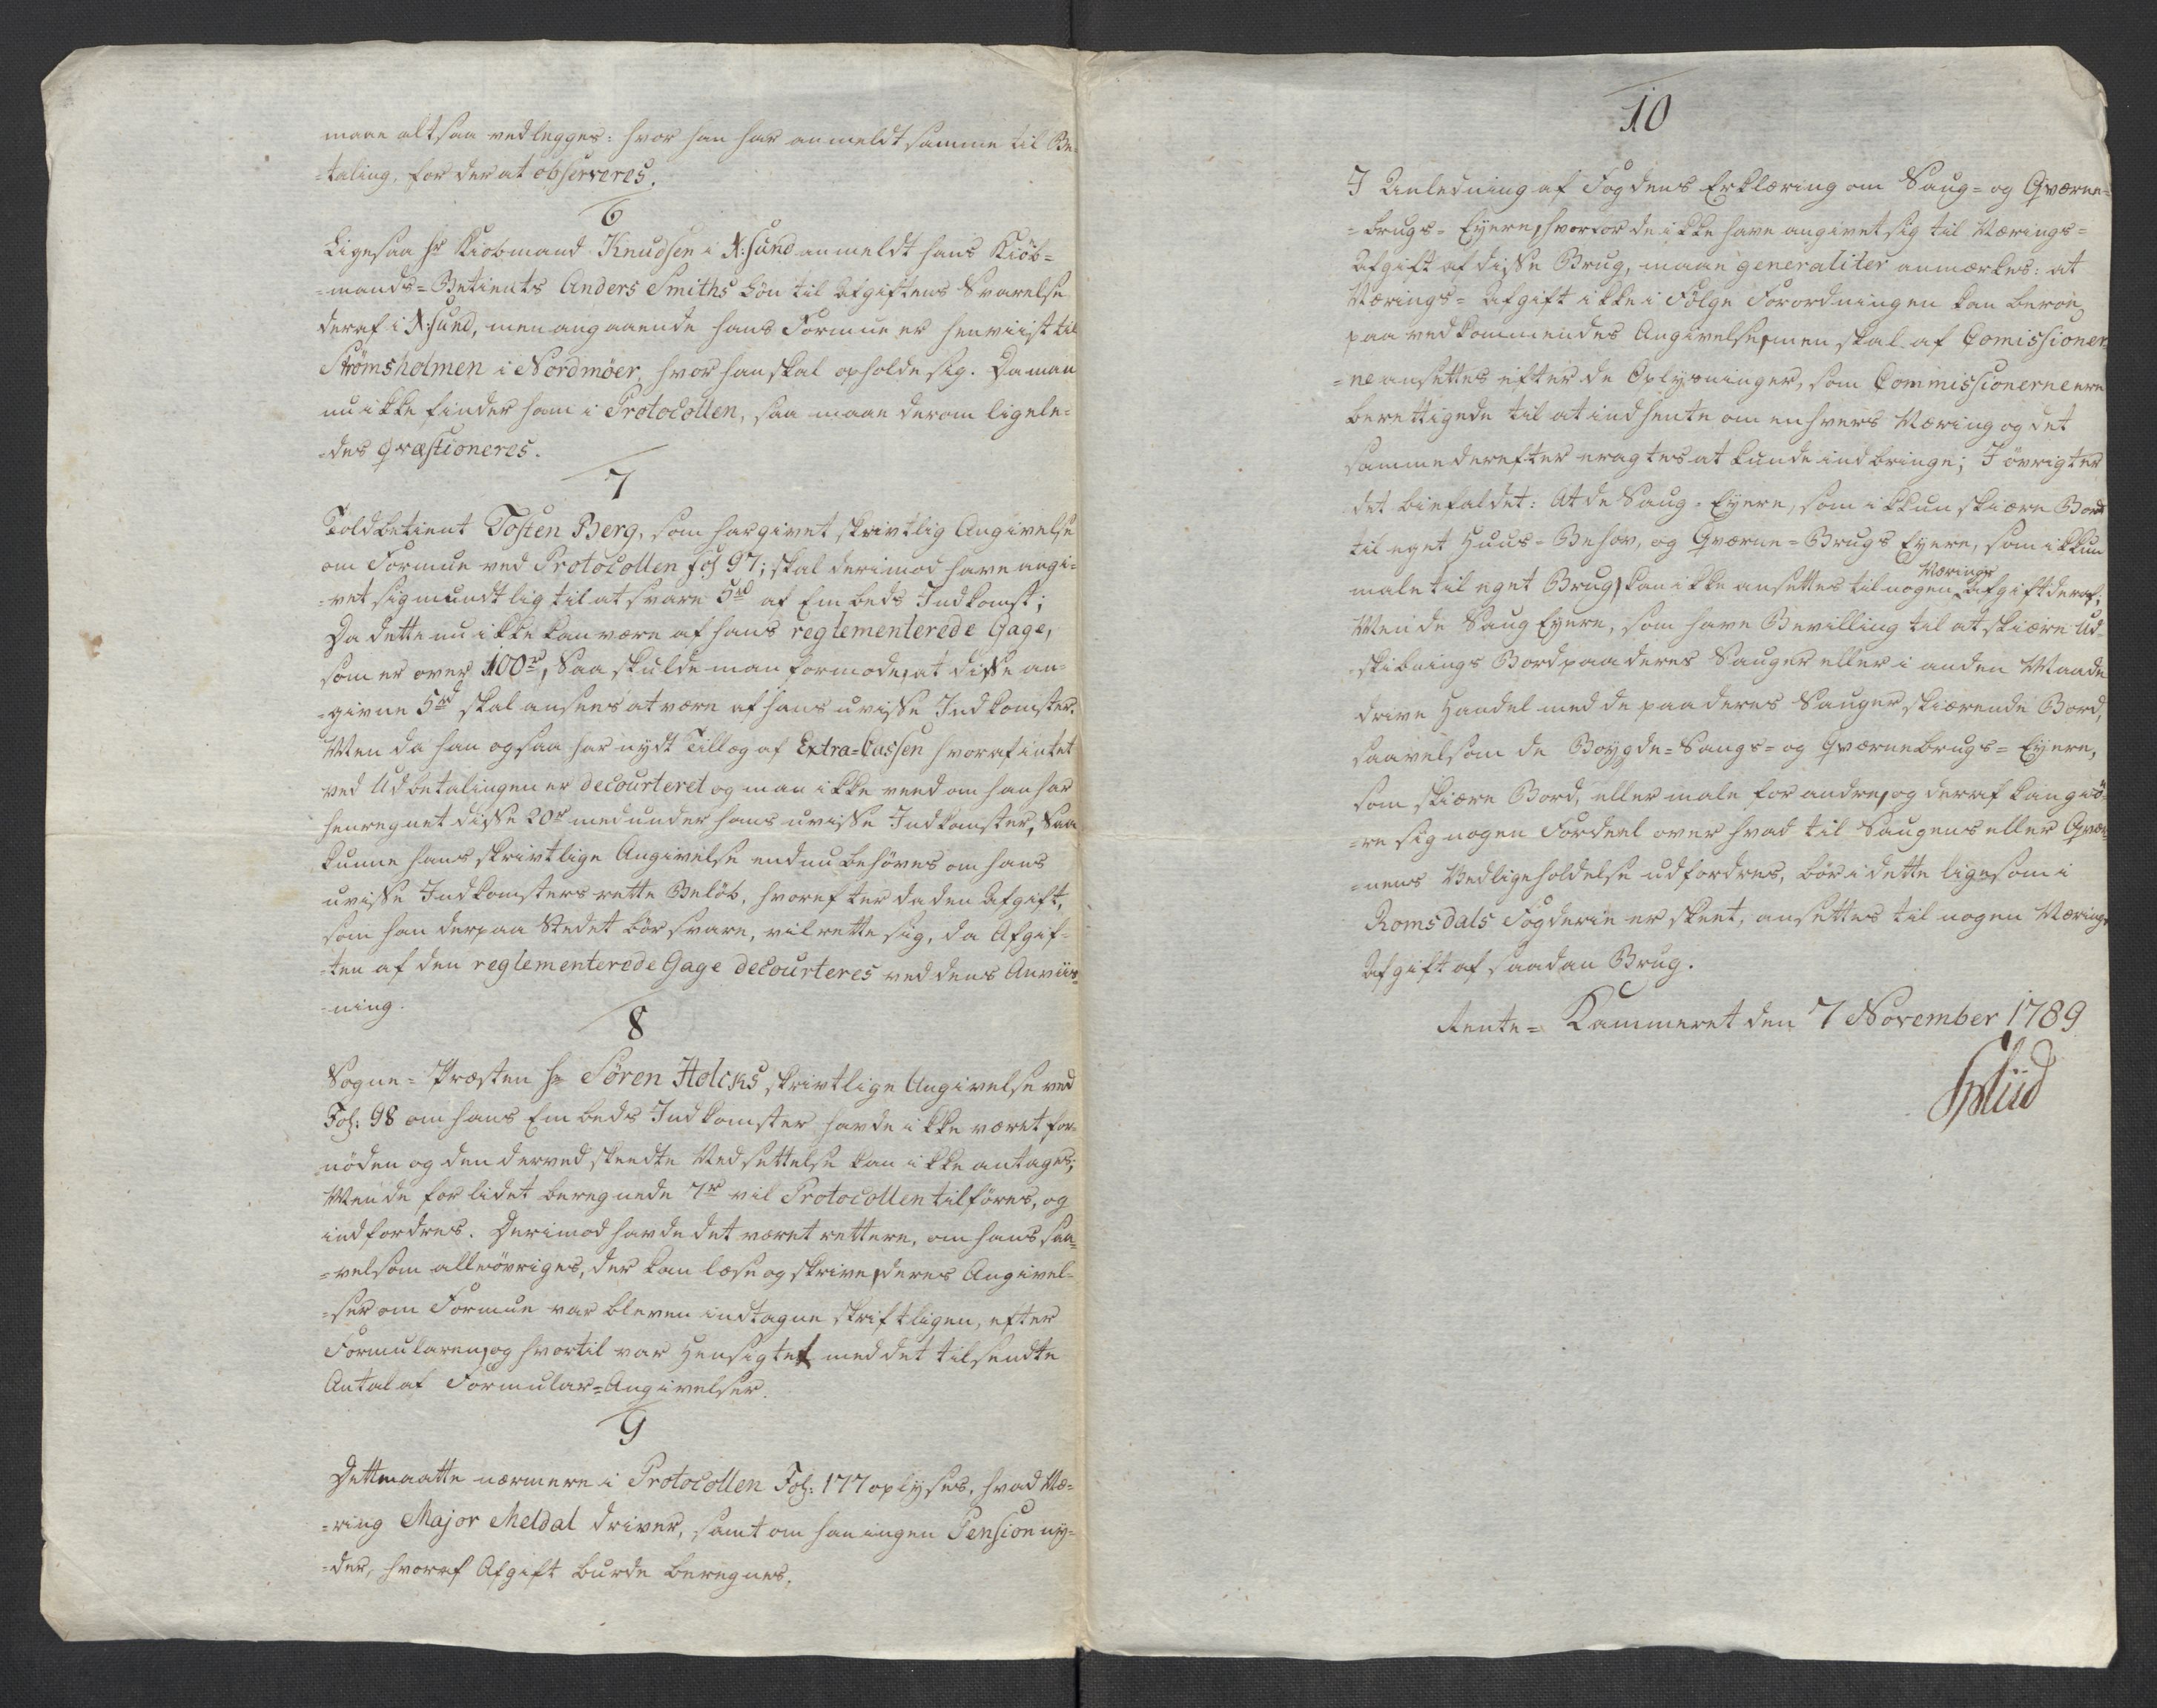 maae altsaa vedlegges: hvor han har anmeldt samme til Be-
=taling, for der at observeres.
6
Ligesaa hr Kiøbmand Knudsen i X:sund anmeldt hans Kiöb=
=mands-Betients Anders Smiths Lön til Afgiftens Svarelse
deraf i X:sund, men angaaende hans Formue er henviist til
Strömsholmen i Nordmöer, hvor han skal opholde sig. Da man
nu ikke finder ham i Protocollen, saa maae derom ligele=
=des qvæstioneres.
7
Toldbetient Tosten Berg, som har givet skrivtlig Angivelse
om Formue ved Protocollen fol 97; skal derimod have angi=
=vet sig mundtlig til at svare 5rd af Embeds Indkomst;
Da dette nu ikke kan være af hans reglementerede Gage,
som er over 100rd, Saa skulde man formode, at disse an=
=givne 5rd skal ansees at være af hans uvisse Indkomster.
Men da han ogsaa har nydt Tillæg af Extra=Cassen hvoraf intet
ved Udbetalingen er decourteret og man ikke veed om han har
henregnet disse 20rd med under hans uvisse Indkomster, Saa
kunne hans skrivtlige Angivelse endnu behöves om hans
uvisse Indkomsters rette Belöb, hvorefter da den Afgift,
som han derpaa Stedet bör svare, vil rette sig, da Afgif=
=ten af den reglementerede Gage decourteres ved dens Anviis=
=ning.
8
Sogne=Præsten hr Sören Holcks skrivtlige Angivelse ved
Fol: 98 om hans Embeds Indkomster havde ikke været for=
nöden og den derved skeedte Nedsettelse kan ikke antages;
Men de for lidet beregnede 7rd vil Protocollen tilföres, og
indfordres. Derimod havde det været rettere, om hans saa=
=velsom alle övriges, der kan læse og skrive, deres Angivel=
=ser om Formue var bleven indtagne skriftligen, efter
Formularen, og hvortil var Hensigtet med det tilsendte
Antal af Formular=Angivelser.
9
Dette maatte nærmere i Protocollen Fol: 177 oplyses, hvad Næ=
=ring Major Meldal driver, samt om han ingen Pension ny=
=der, hvoraf Afgift burde beregnes.
10
I Anledning af Fogdens Erklæring om Saug= og Qværne=
=brugs= Eyere, hvorfor de ikke have angivet sig til Nærings=
Afgift af disse Brug, maae generaliter anmærkes: at
Nærings= Afgift ikke i Fölge Forordningen kan beroe
paa vedkommendes Angivelse, men skal af Comissioner=
=ne ansettes efter de Oplysninger, som Commissionerne ere
berettigede til at indhente om enhvers Næring og det
samme derefter eragtes at kunde indbringe; I övrigt er
det biefaldet: At de Saug= Eyere, som ikkun skiære Bord
til eget Huus= Behov, og Qværne=Brugs Eyere, som ikkun
male til eget Brug, kan ikke ansettes til nogen Nærings Afgift deraf;
Men de Saug Eyere, som have Bevilling til at skiære Ud=
skibnings Bord paa deres Sauger eller i anden Maade
drive Handel med de paa deres Sauger skiærende Bord,
saavelsom de Boygde=Saugs= og Qværnebrugs= Eyere,
som skiære Bord, eller male for andre, og deraf kan giö=
=re sig nogen Fordeel over hvad til Saugens eller Qvær=
=nens Vedligeholdelse udfordres, bör i dette ligesom i
Romsdals Fogderie er skeet, ansettes til nogen Nærings
Afgift af saadan Brug.
Rente= Kammeret den 7 November 1789